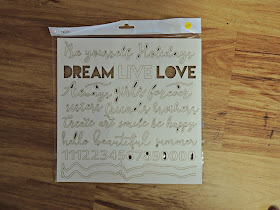 Be yourself Holidays
DREAM LIVE LOVE
Always girls forever
sisters friends brothers
create art smile be happy
hello beautiful summer